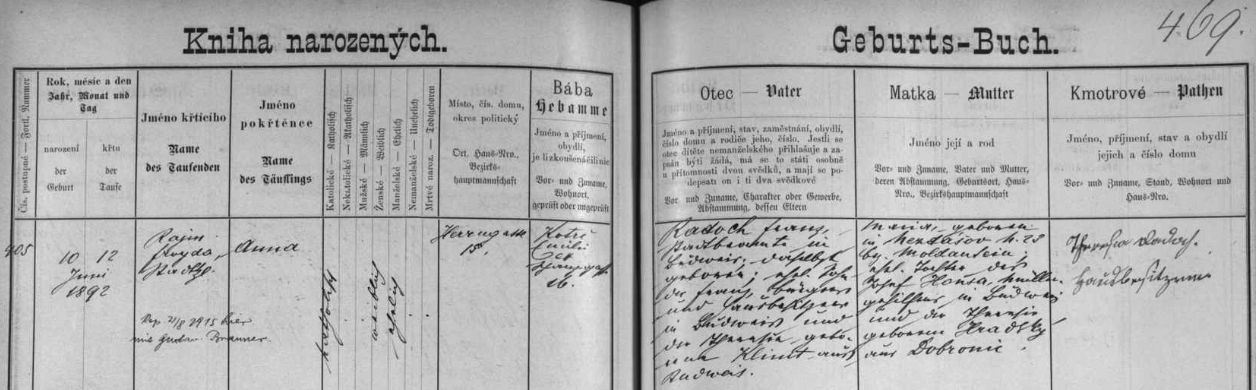 469.
Kniha narozených.
Geburts-Buch.
Čís. postupné — Fortl. Nummer
Rok, měsíc a den
Jahr, Monat und
Tag
narození
der
Geburt
křtu
der
Taufe
Jméno křticího
Name
des Taufenden
Jméno
pokřtěnce
Name
des Täuflings
Katolické — Katholisch
Nekatolické — Akatholisch
Mužské — Männlich
Ženské — Weiblich
Manželské — Ehelich
Nemanželské — Unehelich
Mrtvě naroz. — Todtgeboren
Místo, čís. domu,
okres politický
Ort, Haus-Nro.,
Bezirks-
hauptmannschaft
Bába
Hebamme
Jméno a příjmení,
obydlí,
je-li zkoušená čili nic
Vor- und Zuname,
Wohnort,
geprüft oder ungeprüft
Otec — Vater
Jméno a příjmení, stav, zaměstnání, obydlí,
číslo domu a rodiče jeho, číslo. Jestli se
otec dítěte nemanželského přihlašuje a za-
psán býti žádá, má se to státi osobně
u přítomnosti dvou svědků, a mají se po-
depsati on i ti dva svědkové
Vor- und Zuname, Charakter oder Gewerbe,
Abstammung, dessen Eltern
Matka — Mutter
Jméno její a rod
Vor- und Zuname, Vater und Mutter,
deren Abstammung, Geburtsort, Haus-
Nro., Bezirkshauptmannschaft
Kmotrové — Pathen
Jméno, příjmení, stav a obydlí
jejich a číslo domu
Vor- und Zuname, Stand, Wohnort und
Haus-Nro.
405
10 12
Juni
1892
Anna
katholisch
weiblich
ehelich
15.
16.
Kadoch Franz,
Stadtbeamte in
Budweis, daselbst
geboren; ehel. Sohn
des Franz, Bürgers
und Hausbesitzers
in Budweis und
der Theresie, gebo-
rene Klimt aus
Budweis.
Maria, geboren
in
bz. Moldautein,
ehel. Tochter des
Josef Honsa, Müller-
gehilfen in Budweis
und der Theresie
geborene Hradský
aus Dobronic.
Theresia Kadoch.
Hausbesitzerin